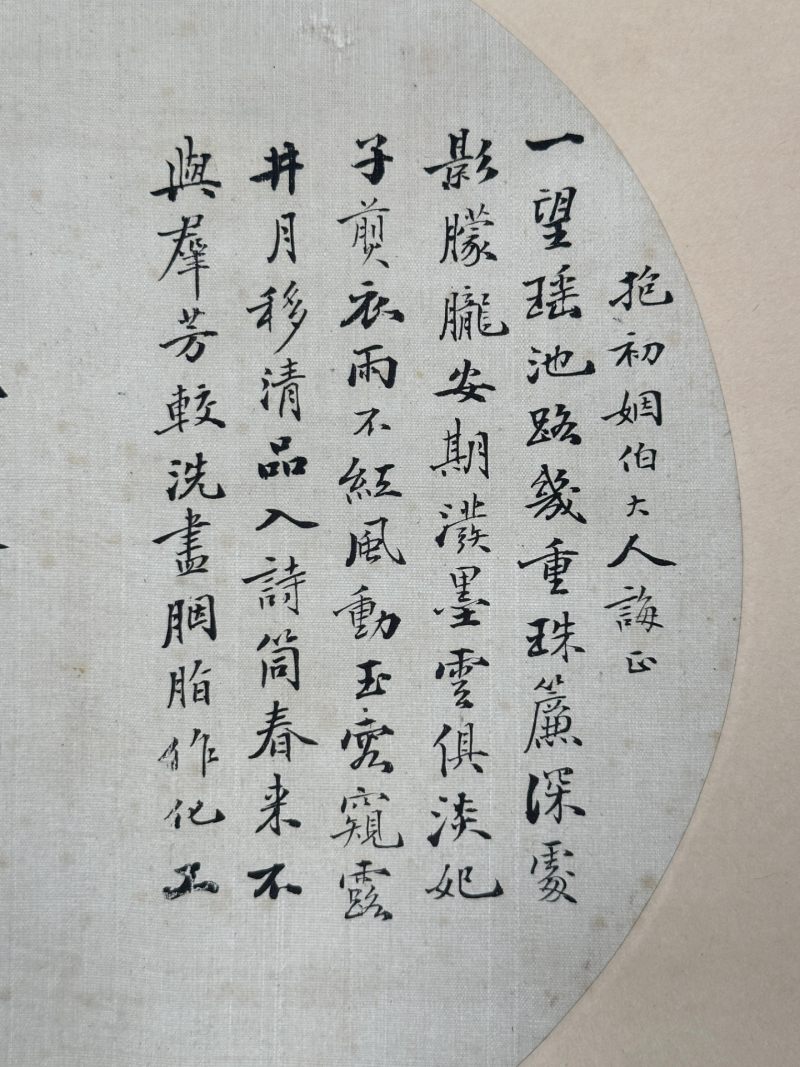 抱初姻伯大人誨正
一望瑤池路幾重珠簾深處
影朦朧安期潑墨雲俱淡妃
子翦衣雨不紅風動玉容窺露
井月移清品入詩筒春来不
與羣芳較洗盡胭脂作化工